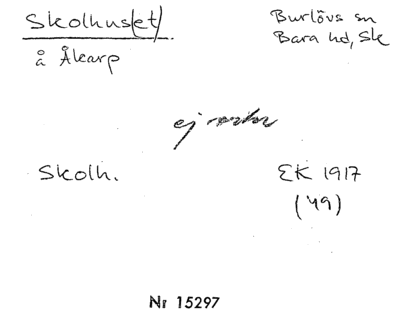 Skolhus(et)
Burlövs sn
Bara hd, Sk
å Åkarp
ej
Skolh.
EK 1917
(49)
Nr 15297